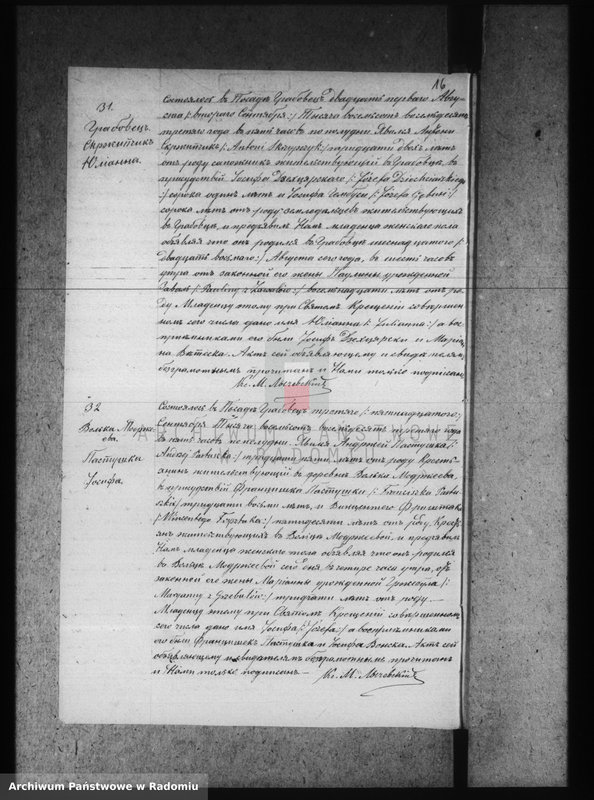 16
31.
Грабовецъ
Скржипчикъ
Юліанна.
Состоялось въ Посадѣ Грабовецъ двадцать перваго Авгу-
ста /: втораго Сентября :/ Тысяча восемьсотъ восемьдесятъ
третьяго года въ часовъ по полудни Явился Антоній
Скржипчикъ /: Antoni Skrzypczyk :/ тридцати двухъ лѣтъ
отъ роду жительствующій въ Грабовцѣ, въ
присутствіи Іосифа /: Józefa
:/ сорока одинъ лѣтъ и Іосифа /: Józefa :/
сорока лѣтъ отъ роду земледѣльцевъ жительствующихъ
въ Грабовцѣ, и предъявилъ Намъ младенца женскаго пола
объявляя что онъ родился въ Грабовцѣ шеснадцатого /:
двадцать восьмого :/ Августа сего года, въ шесть часовъ
утра отъ законной его жены Паулины урожденной
/: Pauliny z :/ восемнадцати лѣтъ отъ ро-
ду Младенцу этому при Святомъ Крещеніи совершен-
номъ сего числа дано имя Юліанна /: Julianna :/ а вос-
пріемниками его были Іосифъ и Марі-
на Актъ сей объявляющему и свидѣтелямъ
безграмотнымъ прочитанъ и Нами только подписанъ
Кс. М.
32
Волька Модрже-
ова.
Пастушка
Іосифа.
Состоялось въ Посадѣ Грабовецъ третьяго /: пятнадцатаго :/
Сентября Тысяча восемьсотъ восемьдесятъ третьяго года
въ часовъ по полудни. Явился Андржей Пастушка /:
:/ тридцати пяти лѣтъ отъ роду Кресть-
янинъ жительствующій въ деревнѣ Волька Модржеева,
въ присутствіи Францишка Пастушки /: Franciszka
:/ тридцати восьми лѣтъ, и Винцентаго
/: Wincentego :/ пятидесяти лѣтъ отъ роду, Крест-
янъ жительствующихъ въ Вольцѣ Модржеевой, и предъявилъ
Намъ младенца женскаго пола объявляя что онъ родился
въ Вольцѣ Модржеевой сего дня въ четыре часа утра, отъ
законной его жены Маріанны урожденной /:
Maryanny z :/ тридцати лѣтъ отъ роду.—
Младенцу этому при Святомъ Крещеніи совершенномъ
сего числа дано имя Іосифа /: Józefa :/ а воспріемниками
его были Францишекъ Пастушка и Іосифа Актъ сей
объявляющему и свидѣтелямъ безграмотнымъ прочитанъ
и Нами только подписанъ — Кс. М.
Archiwum Państwowe w Radomiu